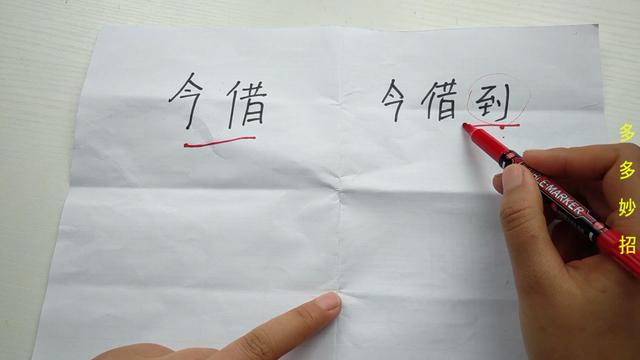 今借
今借到
MARKER
多多妙招